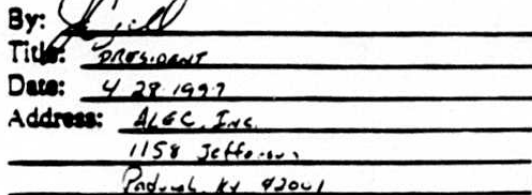 By:
Title: PRESIDENT
Date: 4 28 1997
Address: ALEC, Inc.
1158 Jefferson
Paducah, Ky 42001